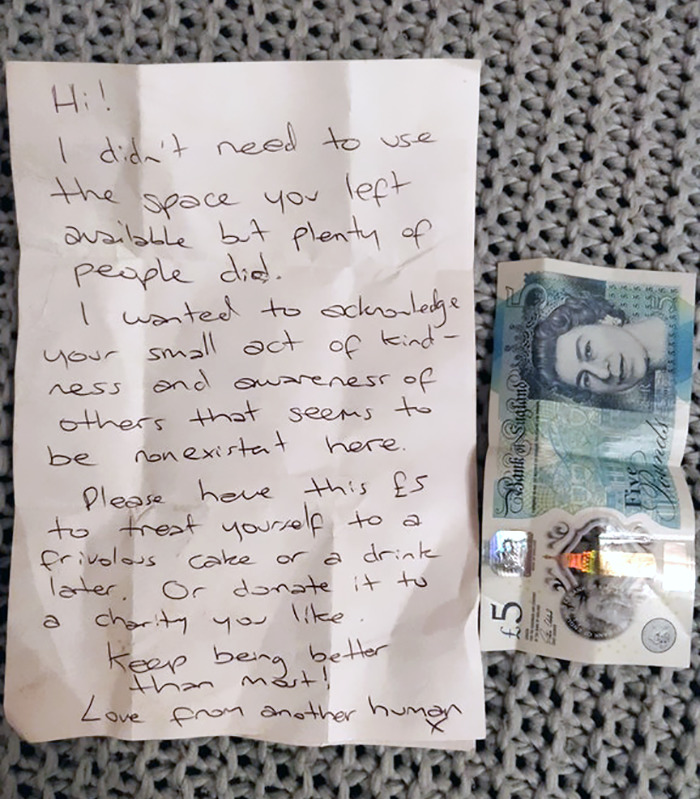 Hi!
I didn't need to use
the space you left
available but plenty of
people did.
I wanted to acknowledge
your small act of kind-
ness and awareness of
others that seems to
be nonexistat here.
Please have this £5
to treat yourself to a
frivolous cake or a drink
later. Or donate it to
a charity you like.
Keep being better
than most!
Love from another human
x
5
Bank of England
Five
Pounds
£5